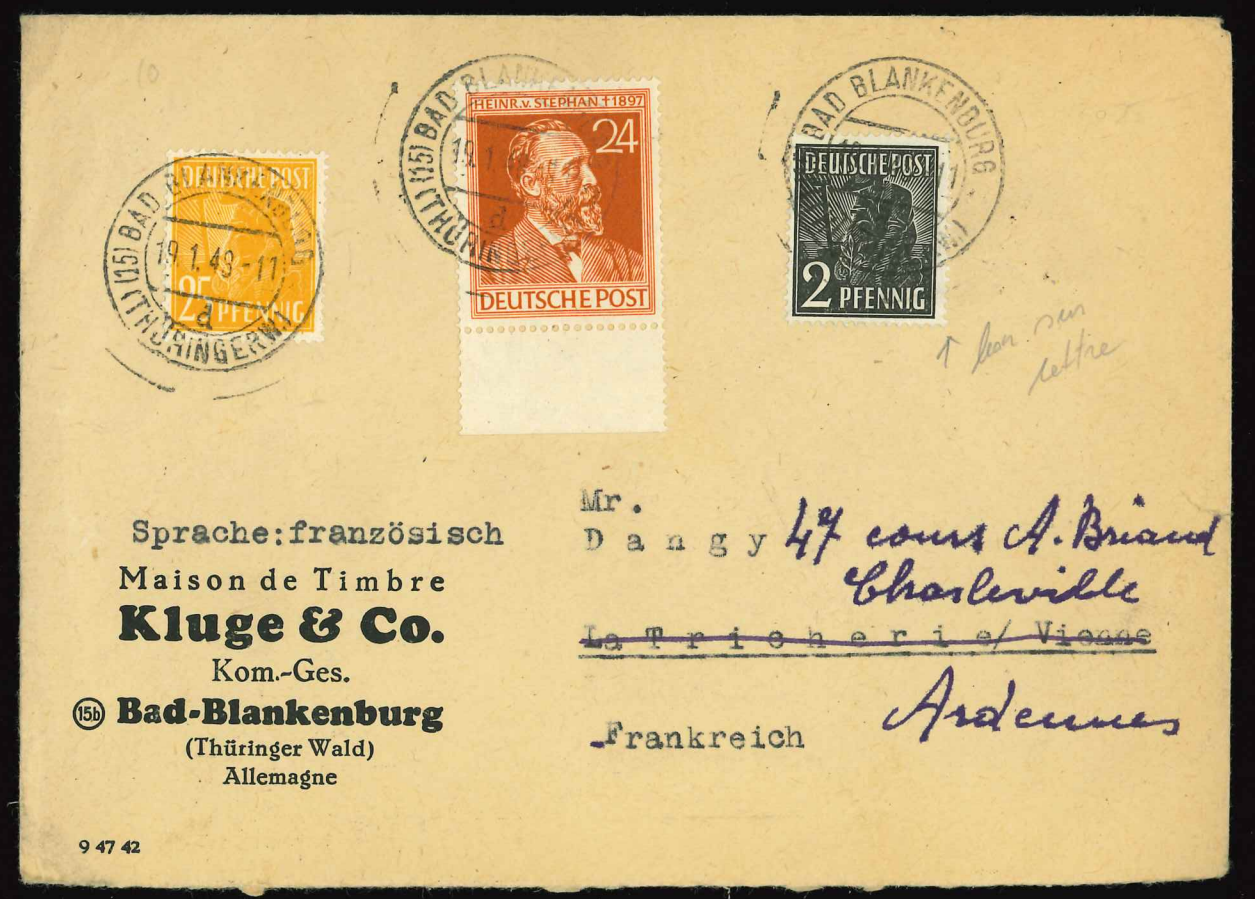 BAD BLANKENBURG
(15) (THÜRINGERW)
19.1.48-11
a
DEUTSCHE POST
25 PFENNIG
(15) BAD BLANKEN
(THÜRIN
19.1.4
d
HEINR.v.STEPHAN.†1897
24
DEUTSCHE POST
BAD BLANKENBURG
DEUTSCHE POST
2 PFENNIG
↑ bon sur
lettre
Sprache:französisch
Maison de Timbre
Kluge & Co.
Kom.-Ges.
15b Bad-Blankenburg
(Thüringer Wald)
Allemagne
9 47 42
Mr.
Dangy 47 cours A. Briand
Charleville
La Tricherie/ Vienne
Ardennes
Frankreich